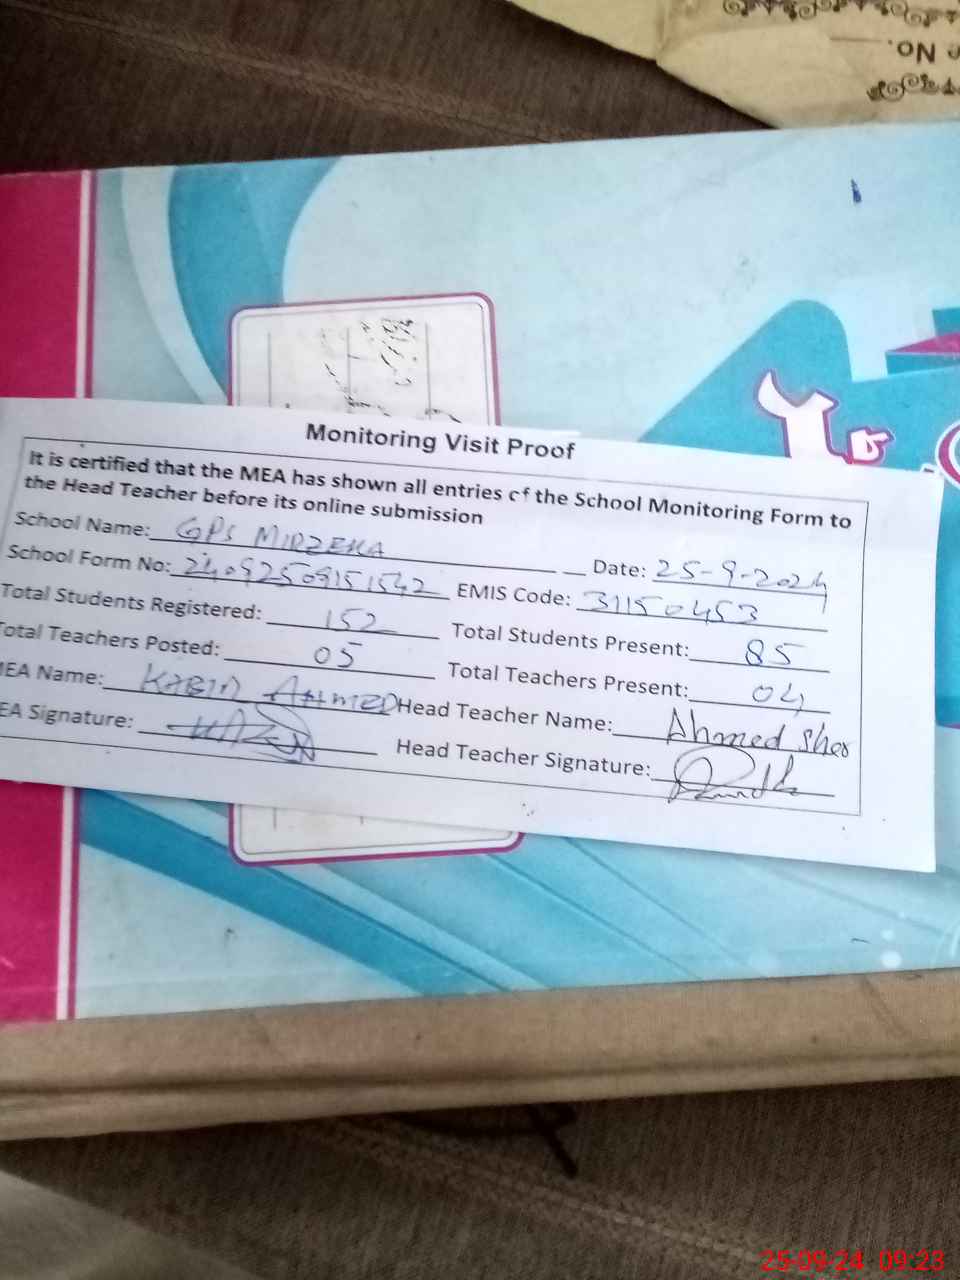 e No.
Monitoring Visit Proof
It is certified that the MEA has shown all entries of the School Monitoring Form to
the Head Teacher before its online submission
School Name: GPS MIRZEKA Date: 25-9-2024
School Form No: 24092509151542 EMIS Code: 31150453
Total Students Registered: 152 Total Students Present: 85
Total Teachers Posted: 05 Total Teachers Present: 04
MEA Name: KABIR AHMED Head Teacher Name: Ahmed Sher
EA Signature: Head Teacher Signature:
25-09-24 09:23